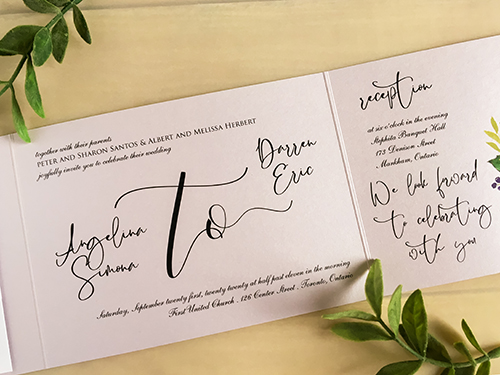 together with their parents
PETER AND SHARON SANTOS & ALBERT AND MELISSA HERBERT
joyfully invite you to celebrate their wedding
Angelina
Simona
To
Darren
Eric
Saturday, September twenty first, twenty twenty at half past eleven in the morning
First United Church . 126 Center Street . Toronto, Ontario
reception
at six o'clock in the evening
Stephita Banquet Hall
175 Denison Street
Markham, Ontario
We look forward
to celebrating
with you